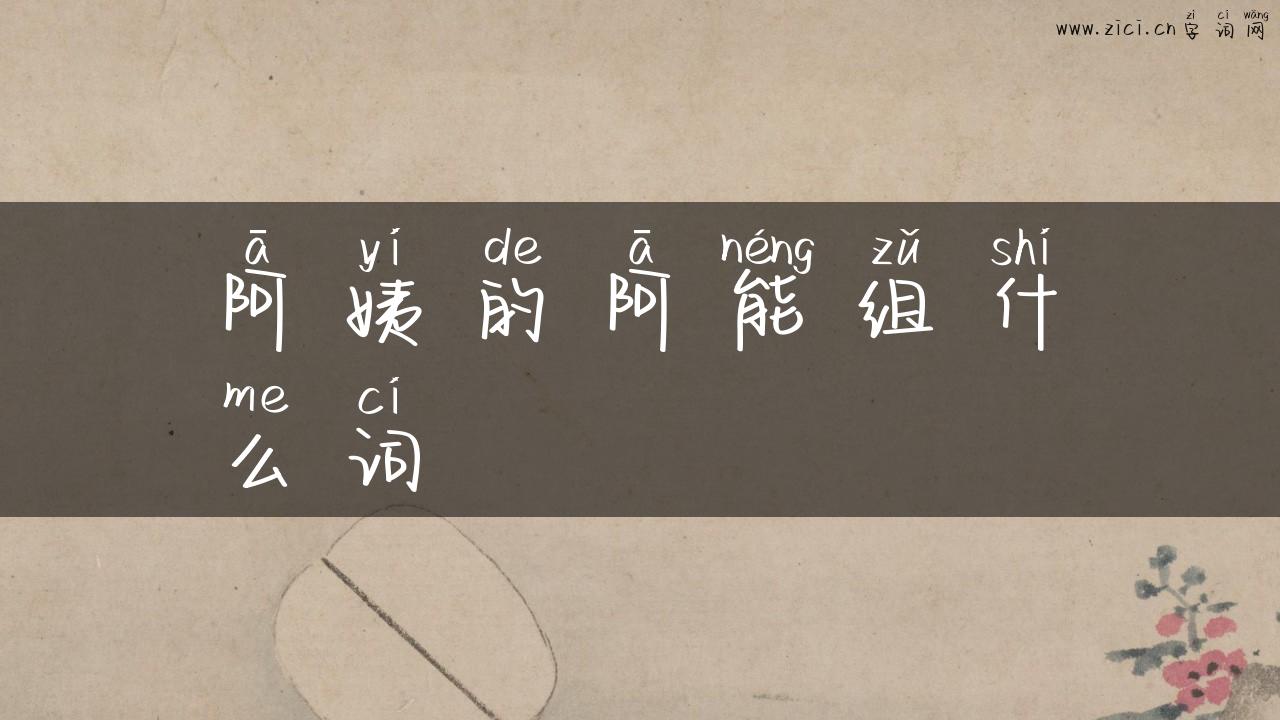 zì cí wǎng
www.zici.cn 字 词 网
ā yí de ā néng zǔ shí
阿 姨 的 阿 能 组 什
me cí
么 词